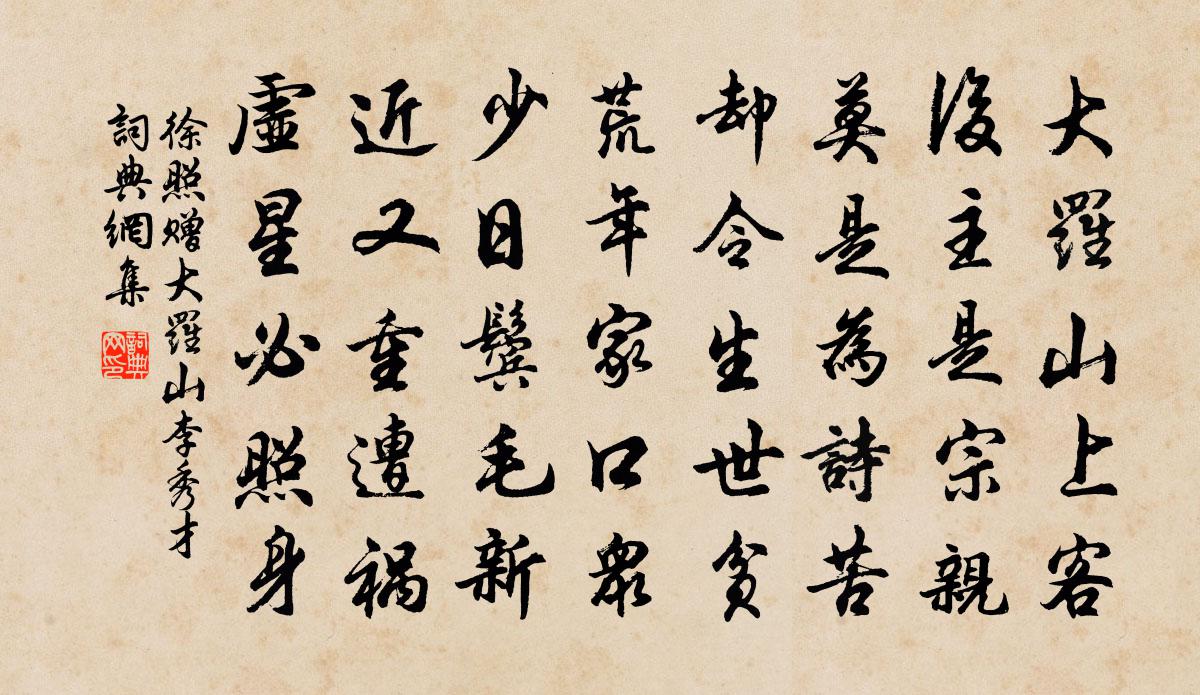 大羅山上客
後主是宗親
莫是為詩苦
却令生世貧
荒年家口衆
少日鬢毛新
近又重遭禍
虛星必照身
徐照贈大羅山李秀才
詞典網集
詞典网印